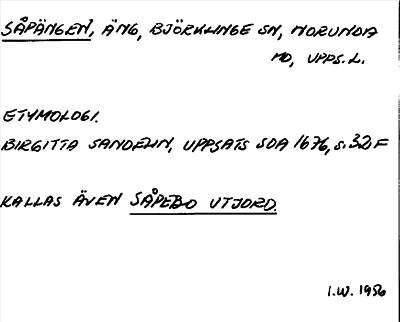 SÅPÄNGEN, ÄNG, BJÖRKLINGE SN, NORUNDA
HD, UPPS.L.
ETYMOLOGI.
BIRGITTA SANDELIN, UPPSATS SOA 1676, S. 32 F
KALLAS ÄVEN SÅPEBO UTJORD.
I.W. 1956